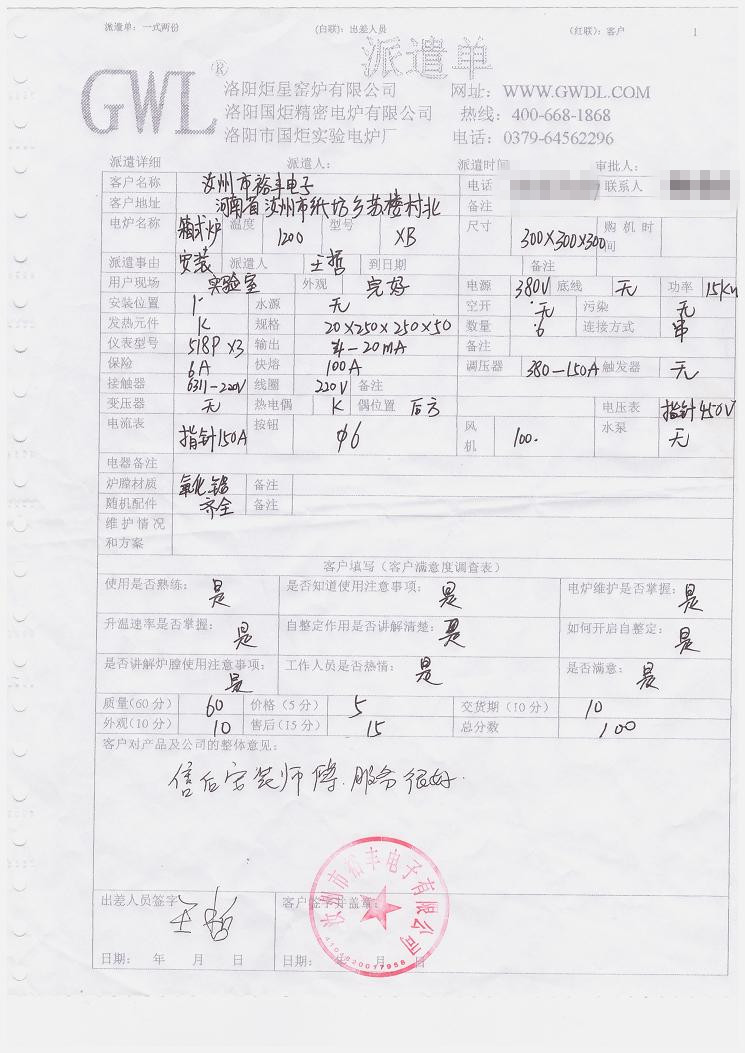 派遣单：一式两份 (白联)：出差人员 (红联)：客户 1
派遣单
GWL®
洛阳炬星窑炉有限公司 网址：WWW.GWDL.COM
洛阳国炬精密电炉有限公司 热线：400-668-1868
洛阳市国炬实验电炉厂 电话：0379-64562296
派遣详细 派遣人： 派遣时间 审批人：
客户名称 汝州市裕丰电子 电话 联系人
客户地址 河南省汝州市纸坊乡苏楼村北 备注
电炉名称 箱式炉 温度 1200 型号 XB 尺寸 300X300X300 购机时间
派遣事由 安装 派遣人 王哲 到日期 备注
用户现场 实验室 外观 完好 电源 380V 底线 无 功率 15KW
安装位置 水源 无 空开 无 污染 无
发热元件 K 规格 20×250×250×50 数量 6 连接方式 串
仪表型号 518P X3 输出 4-20mA 备注
保险 6A 快熔 100A 调压器 380-150A 触发器 无
接触器 6311-220V 线圈 220V 备注
变压器 无 热电偶 K 偶位置 后方 电压表 指针450V
电流表 指针150A 按钮 φ6 风机 100. 水泵 无
电器备注
炉膛材质 氧化铝 备注
随机配件 齐全 备注
维护情况和方案
客户填写（客户满意度调查表）
使用是否熟练： 是 是否知道使用注意事项： 是 电炉维护是否掌握： 是
升温速率是否掌握： 是 自整定作用是否讲解清楚： 是 如何开启自整定： 是
是否讲解炉膛使用注意事项： 是 工作人员是否热情： 是 是否满意： 是
质量(60分) 60 价格（5分） 5 交货期（10分） 10
外观(10分) 10 售后(15分) 15 总分数 100
客户对产品及公司的整体意见：
信后安装师傅.服务很好.
出差人员签字 王哲 客户签字并盖章：
汝州市裕丰电子有限公司
日期： 年 月 日 日期： 年 月 日